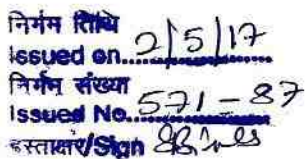 निर्गम तिथि
Issued on 2/5/17
निर्गम संख्या
Issued No. 571-87
हस्ताक्षर/Sign